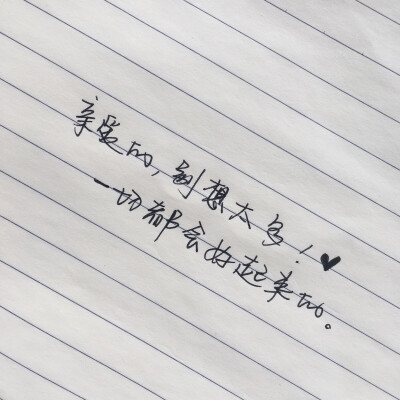 亲爱的，别想太多！♥
一切都会好起来的。